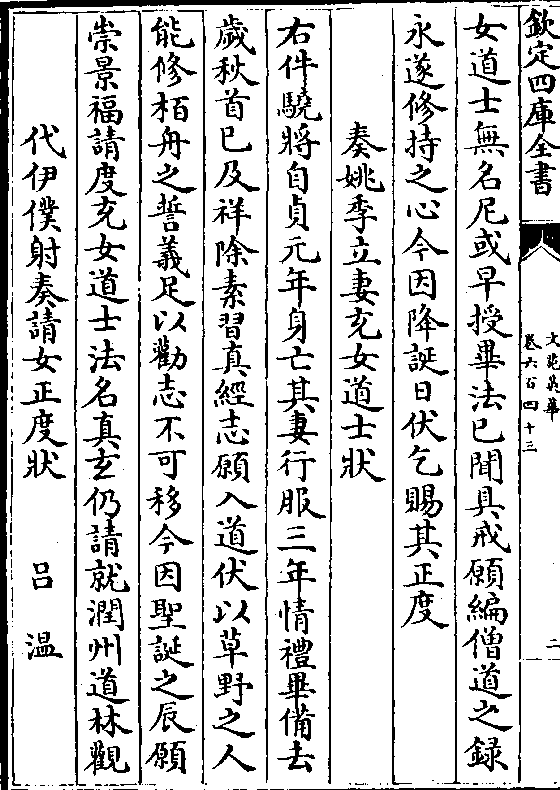 欽定四庫全書
文苑英華
卷六百四十三
二
女道士無名尼或早授畢法已聞具戒願編僧道之録
永遂修持之心今因降誕日伏乞賜其正度
奏姚季立妻充女道士狀
右件驍將自貞元年身亡其妻行服三年情禮畢備去
歲秋首已及祥除素習真經志願入道伏以草野之人
能修栢舟之誓義足以勸志不可移今因聖誕之辰願
崇景福請度充女道士法名真玄仍請就潤州道林觀
代伊僕射奏請女正度狀 吕温